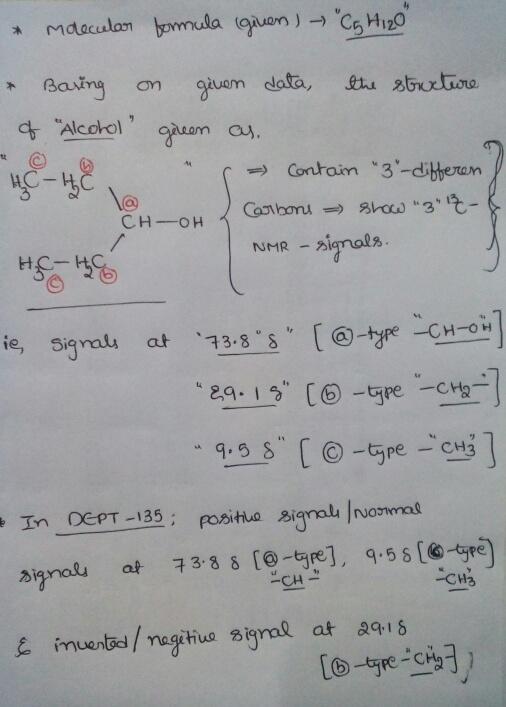 * Molecular formula (given) → "C5H12O"
* Basing on given data, the structure
of "Alcohol" given as.
" H3C – H2C "
ⓒ ⓑ
ⓐ
CH — OH
H3C – H2C
ⓒ ⓑ
⇒ Contain "3"-differen
Carbons ⇒ show "3" 13C-
NMR - signals.
ie, signals at "73.8"δ" [ⓐ-type "-CH-OH"]
"29.1δ" [ⓑ-type "-CH2-"]
"9.5δ" [ⓒ-type -"CH3"]
* In DEPT-135; positive signals/Normal
signals at 73.8δ [ⓐ-type], 9.5δ [ⓒ-type]
"-CH-" "-CH3"
& inverted/negitive signal at 29.1δ
[ⓑ-type-"CH2"],